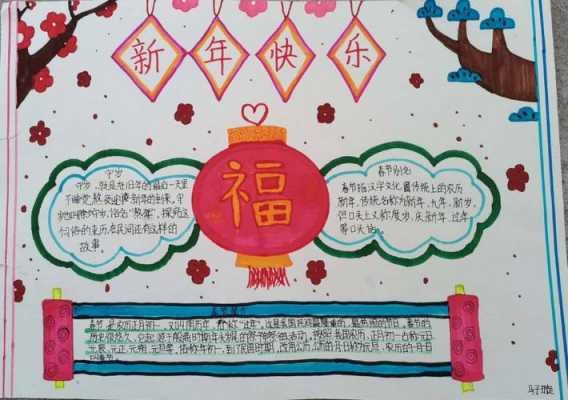 新年快乐
福
守岁
守岁,就是在旧年的最后一天夜里
不睡觉,熬夜迎接新年的到来,
也叫除夕守岁,俗名“熬年”,探究这
个习俗的来历,在民间还有这样的
故事。
春节别名
春节指汉字文化圈传统上的农历
新年,传统名称为新年、大年、新岁,
但口头上又称度岁、庆新岁、过年
等口头语。
春节是农历正月初一,又叫阴历年,俗称“过年”,这是我国民间最隆重的、最热闹的节日,春节的
历史很悠久,它起源于殷商时期年头岁尾的祭神祭祖活动。按照我国农历,正月初一古称元日、
元辰、元正、元朔、元旦等,俗称年初一,到了民国时期,改用公历,公历的一月一日称为元旦,农历的一月一日
叫春节。